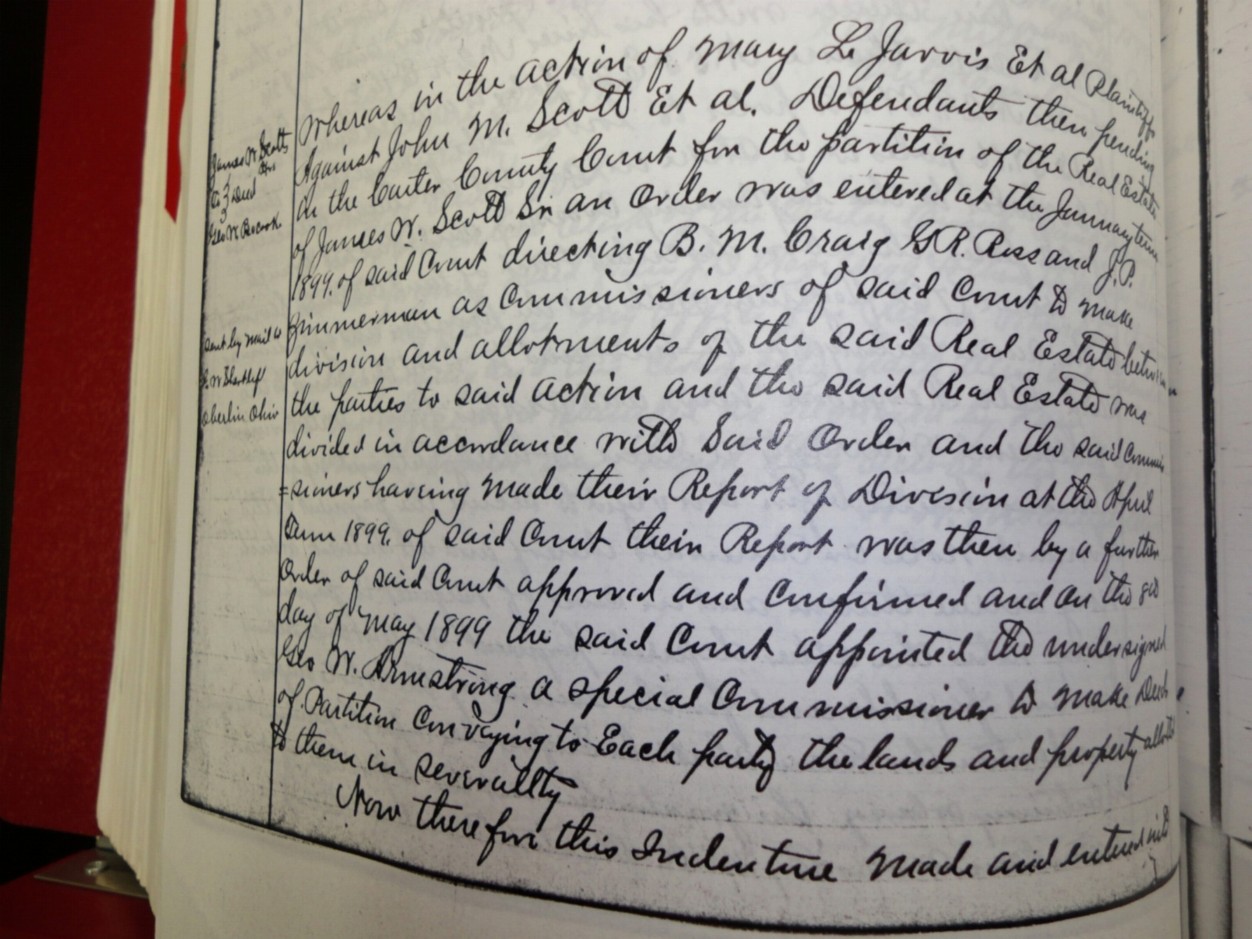 James W. Scott
Deed
Geo W.
sent by mail to
Oberlin Ohio
Whereas in the action of Mary L Jarvis Et al Plaintiffs
Against John M. Scott Et al. Defendants then pending
in the Carter County Court for the partition of the Real Estate
of James W. Scott Sr. an Order was entered at the January term
1899. of said Court directing B. M. Craig G R. Ross and J. P.
Zimmerman as Commissioners of said Court to make
division and allotments of the said Real Estate between
the parties to said action and the said Real Estate was
divided in accordance with Said Order and the said Commis
=sioners having made their Report of Division at the April
Term 1899. of said Court their Report was then by a further
Order of said Court approved and Confirmed and on the
day of May 1899 the said Court appointed the undersigned
Geo W. Armstrong a special Commissioner to make Deeds
of Partition Conveying to Each party the lands and property
to them in severallty
Now therefore this Indenture made and entered into